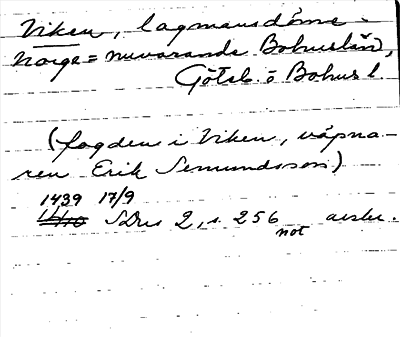 Viken, lagmansdöme -
Norge = nuvarande Bohuslän,
Götab. o Bohus l.
(fogden i Viken, väpna-
ren Erik Semundsson)
1439 17/9
SDns 2, s. 256 avskr.
not